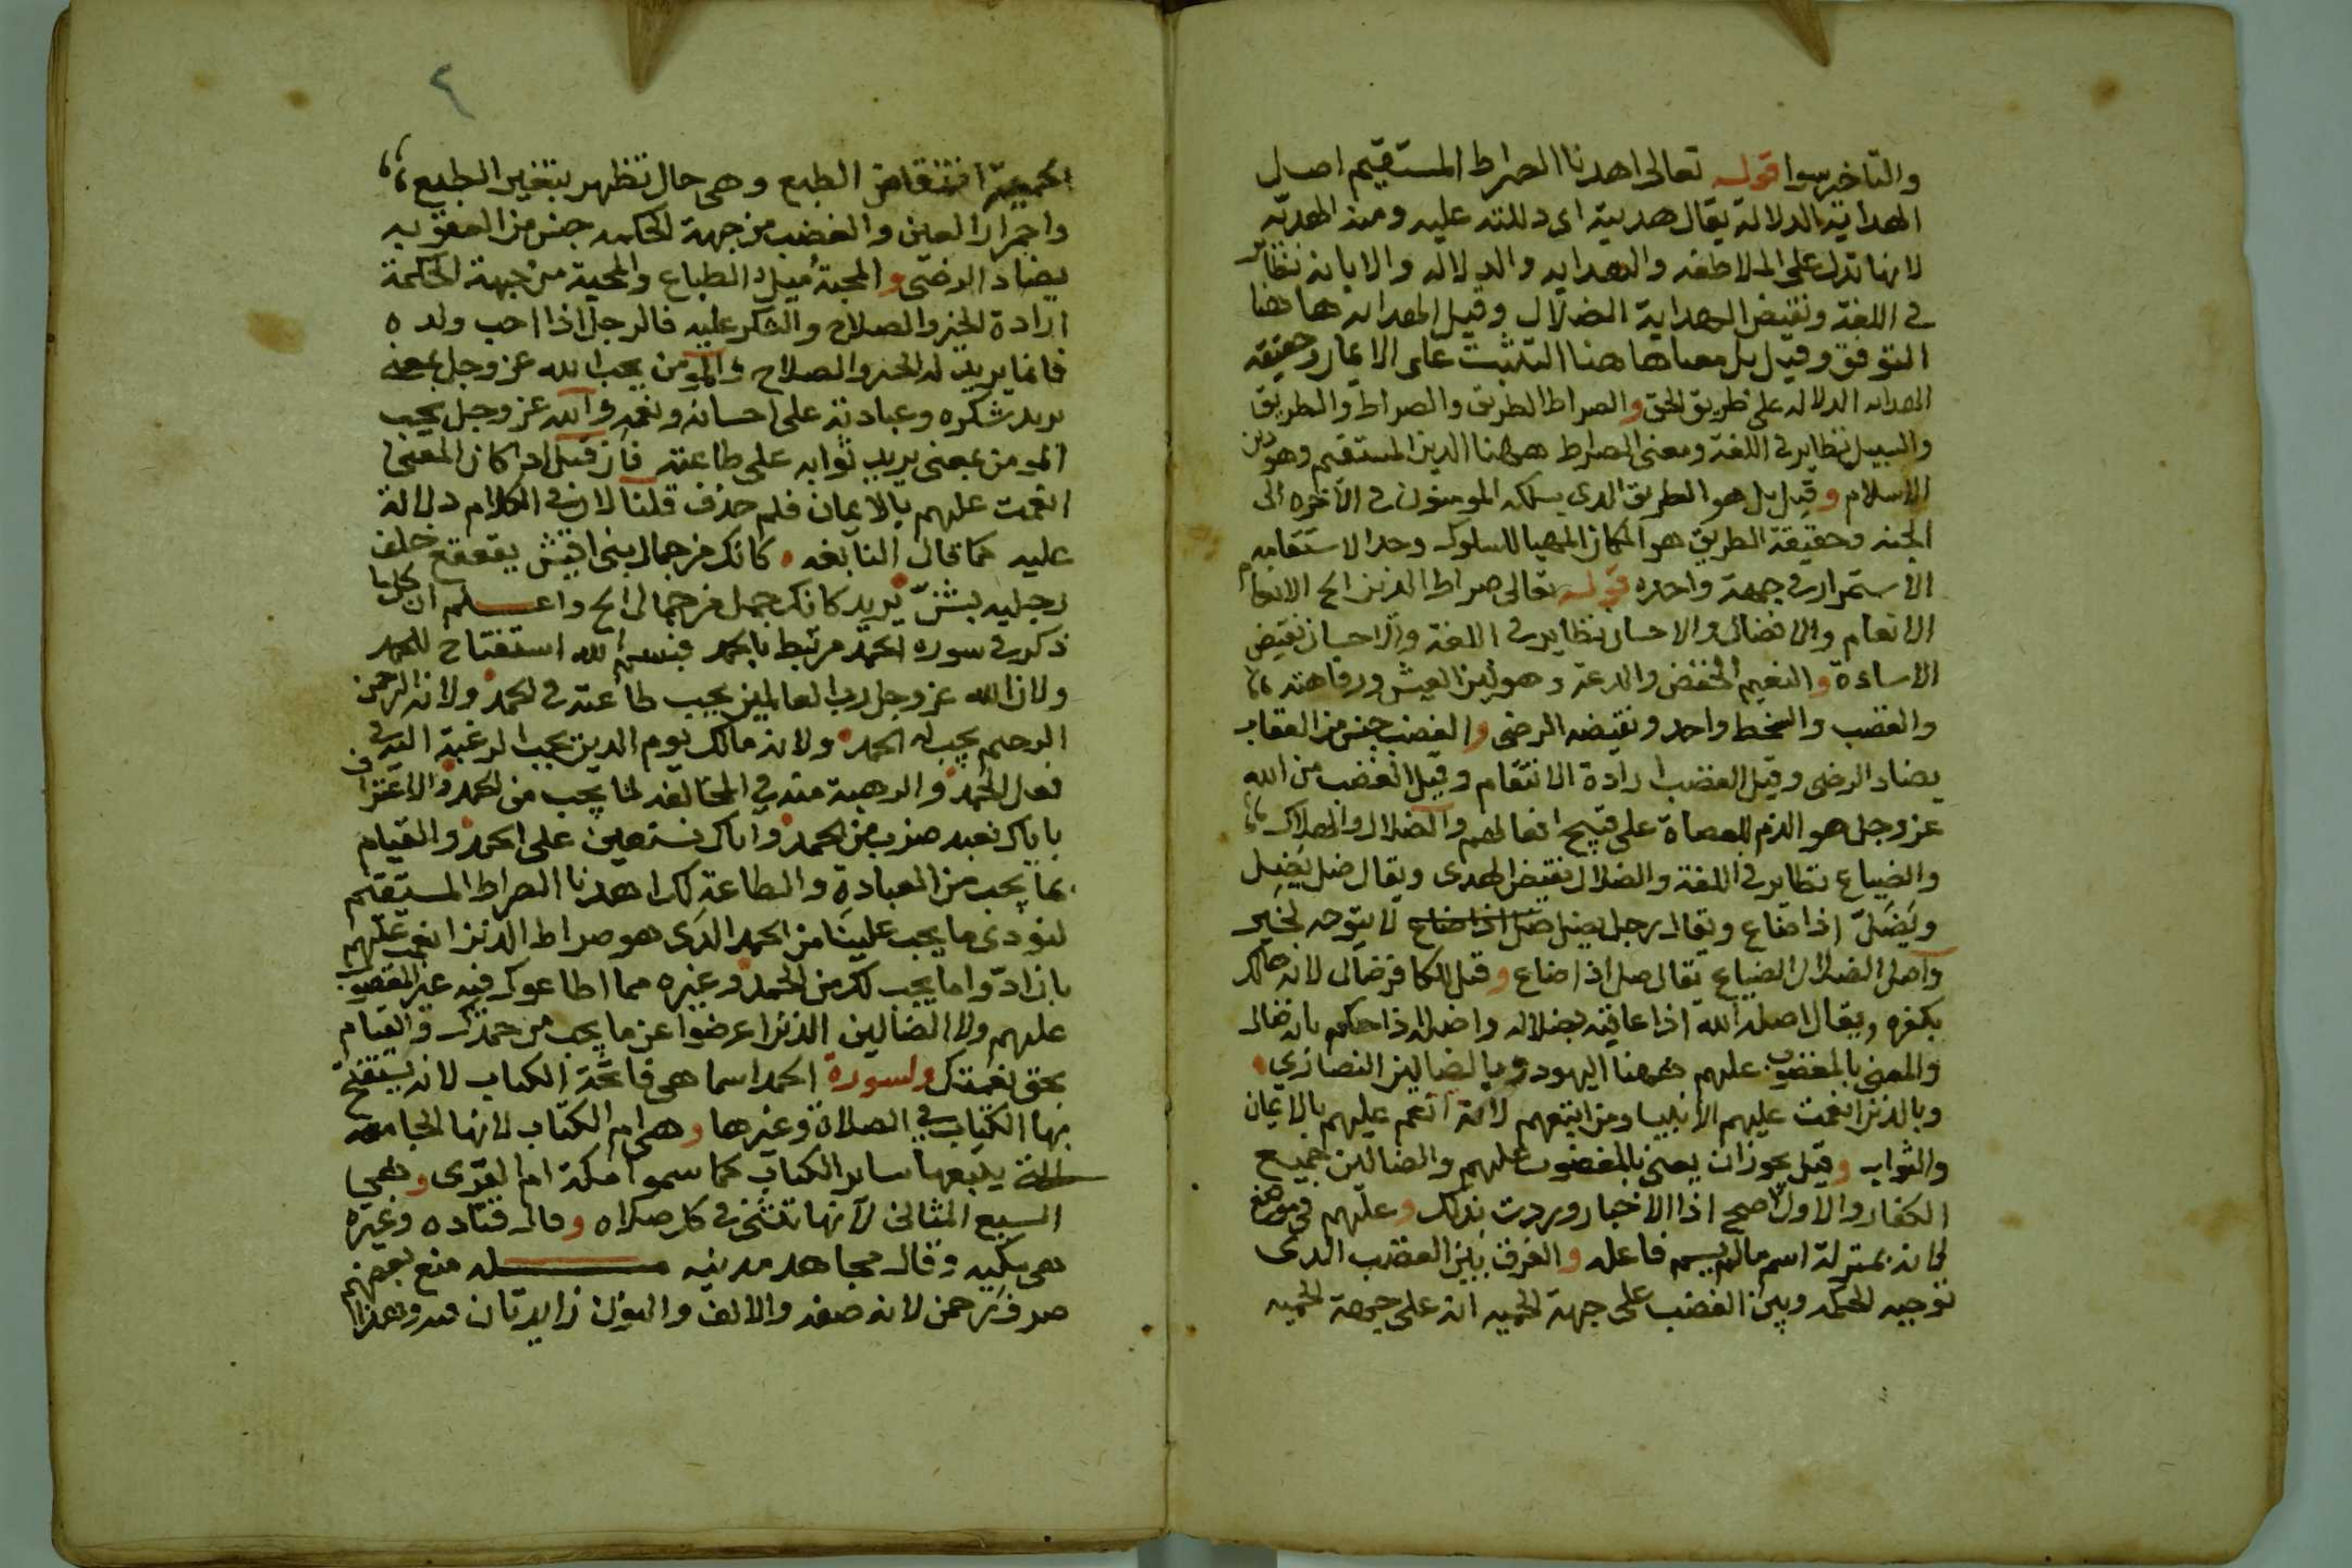 والتاخير سوا قوله تعالى اهدنا الصراط المستقيم اصل
الهداية الدلالة يقال هديته اى دللته عليه ومنه الهديه
لانها تدل على الملاطفه والهدايه والدلاله والابانه نظاير
في اللغة ونقيض الهداية الضلال وقيل الهدايه هاهنا
التوفيق وقيل بل معناها هاهنا التثبت على الايمان وحقيقة
الهدايه الدلاله على طريق الحق والصراط الطريق والصراط والطريق
والسبيل نظاير في اللغة ومعنى الصراط ههنا الدين المستقيم وهو دين
الاسلام وقيل بل هو الطريق الذى يسلكه المومنون في الآخره الى
الجنه وحقيقة الطريق هو المكان المهيا للسلوك وحد الاستقامه
الاستمرار في جهة واحده قوله تعالى صراط الذين الخ الانعام
الانعام والافضال والاحسان نظاير في اللغة والاحسان نقيض
الاساءة والنعيم الخفض والدعة وهو لين العيش ورفاهته
والغضب والسخط واحد ونقيضه الرضى والغضب جنس من العقاب
يضاد الرضى وقيل الغضب ارادة الانتقام وقيل الغضب من الله
عز وجل هو الذم للعصاة على قبيح افعالهم والضلال والهلاك
والضياع نظاير في اللغة والضلال نقيض الهدى ويقال ضل يَضِل
ويَضَلّ اذا ضاع ويقال رجل يضل ضل اذا ضاع لا يتوجه لخير
واصل الضلال الضياع يقال ضل اذا ضاع وقيل للكافر ضال لانه هالك
بكفره ويقال اضله الله اذا عاقبه بضلاله واضله اذا حكم بانه ضال
والمعنى بالمغضوب عليهم ههنا اليهود وبالضالين النصارى
وبالذين انعمت عليهم الانبيا ومن اتبعهم لانه انعم عليهم بالايمان
والثواب وقيل يجوز ان يعنى بالمغضوب عليهم والضالين جميع
الكفار والاول اصح اذا الاخبار وردت بذلك وعليهم في موضع
لانه بمنزلة اسم مالم يسم فاعله والفرق بين الغضب الذى
توجبه الحكمه وبين الغضب على جهة الحميه انه على جهة الحميه
الحمية انتقاض الطبع وهى حال تظهر بتغير الطبع
واحمرار العين والغضب من جهة الحكمه جنس من العقوبه
يضاد الرضى والمحبة ميل الطباع والمحبة من جهة الحكمة
ارادة الخير والصلاح والشكر عليه فالرجل اذا احب ولده
فانما يريد له الخير والصلاح والمومن يحب الله عز وجل بمعنى
يريد شكره وعبادته على احسانه ونعمه والله عز وجل يحب
المومن بمعنى يريد ثوابه على طاعته فان قيل اذ كان المعنى
انعمت عليهم بالايمان فلم حذف قلنا لان في الكلام دلالة
عليه كما قال النابغه كانك من جمال بنى اقيش يقعقع خلف
رجليه بشنّ يريد كانك جمل من جمال الخ واعلم ان كلما
ذكر في سوره الحمد مرتبط بالحمد فبسم الله استفتاح للحمد
ولان الله عز وجل رب العالمين يجب طاعته في الحمد ولانه الرحمن
الرحيم يجب له الحمد ولانه مالك يوم الدين يجب الرغبة اليه في
فعل الحمد والرهبة منه في المخالفه لما يجب من الحمد والاعتراف
باياك نعبد ضرب من الحمد واياك نستعين على الحمد والقيام
بما يجب من العبادة والطاعة لك اهدنا الصراط المستقيم
لنؤدى ما يجب علينا من الحمد الذى هو صراط الذين انعمت عليهم
بان ادّوا ما يجب لك من الحمد وغيره مما اطاعوك فيه غير المغضوب
عليهم ولا الضالين الذين اعرضوا عن ما يجب من حمدك والقيام
بحق نعمتك ولسورة الحمد اسما هى فاتحة الكتاب لانه يستفتح
بها الكتاب في الصلاة وغيرها وهى ام الكتاب لانها الجامعه
يتبعها ساير الكتاب كما سموا مكة ام القرى وهى
السبع المثانى لانها تثنى في كل صلاه وقال قتاده وغيره
هى مكيه وقال مجاهد مدنيه مسله منع بعضهم
صرف رحمن لانه صفه والالف والنون زايدتان فيه وهذا